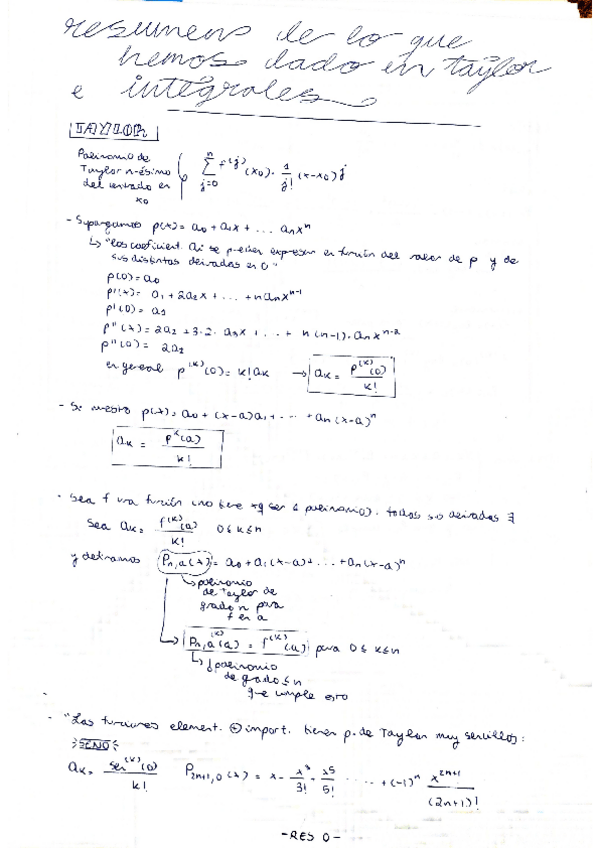 resumens de lo que
hemos dado en taylor
e integrales
TAYLOR
Polinomio de
Taylor n-ésimo
del centrado en
x₀
∑ⱼ₌₀ⁿ f^(j)(x₀) · 1/j! (x-x₀)^j
- Supongamos p(x) = a₀ + a₁x + ... aₙxⁿ
↳ "los coeficient. aᵢ se pueden expresar en función del valor de p y de
sus distintas derivadas en 0"
p(0) = a₀
p'(x) = a₁ + 2a₂x + ... + naₙxⁿ⁻¹
p'(0) = a₁
p''(x) = 2a₂ + 3·2·a₃x + ... + n(n-1)·aₙxⁿ⁻²
p''(0) = 2a₂
en general p^(k)(0) = k!aₖ → aₖ = p^(k)(0)/k!
- Si nuestro p(x) = a₀ + (x-a)a₁ + ... + aₙ(x-a)ⁿ
aₖ = pᵏ(a)/k!
- Sea f una función (no tiene xq ser 1 polinomio). todas sus derivadas ∃
Sea aₖ = f^(k)(a)/k! 0≤k≤n
y definamos Pₙ,ₐ(x) = a₀ + a₁(x-a) + ... + aₙ(x-a)ⁿ
↳ polinomio
de Taylor de
grado n para
f en a
↳ Pₙ,ₐ^(k)(a) = f^(k)(a) para 0≤k≤n
↳ polinomio
de grado ≤n
que cumple esto
- "Las funciones element. ⊕ import. tienen p. de Taylor muy sencillos:
SENO
aₖ = sen^(k)(0)/k! P₂ₙ₊₁,₀(x) = x - x³/3! + x⁵/5! ... + (-1)ⁿ x²ⁿ⁺¹/(2n+1)!
- RES 0 -